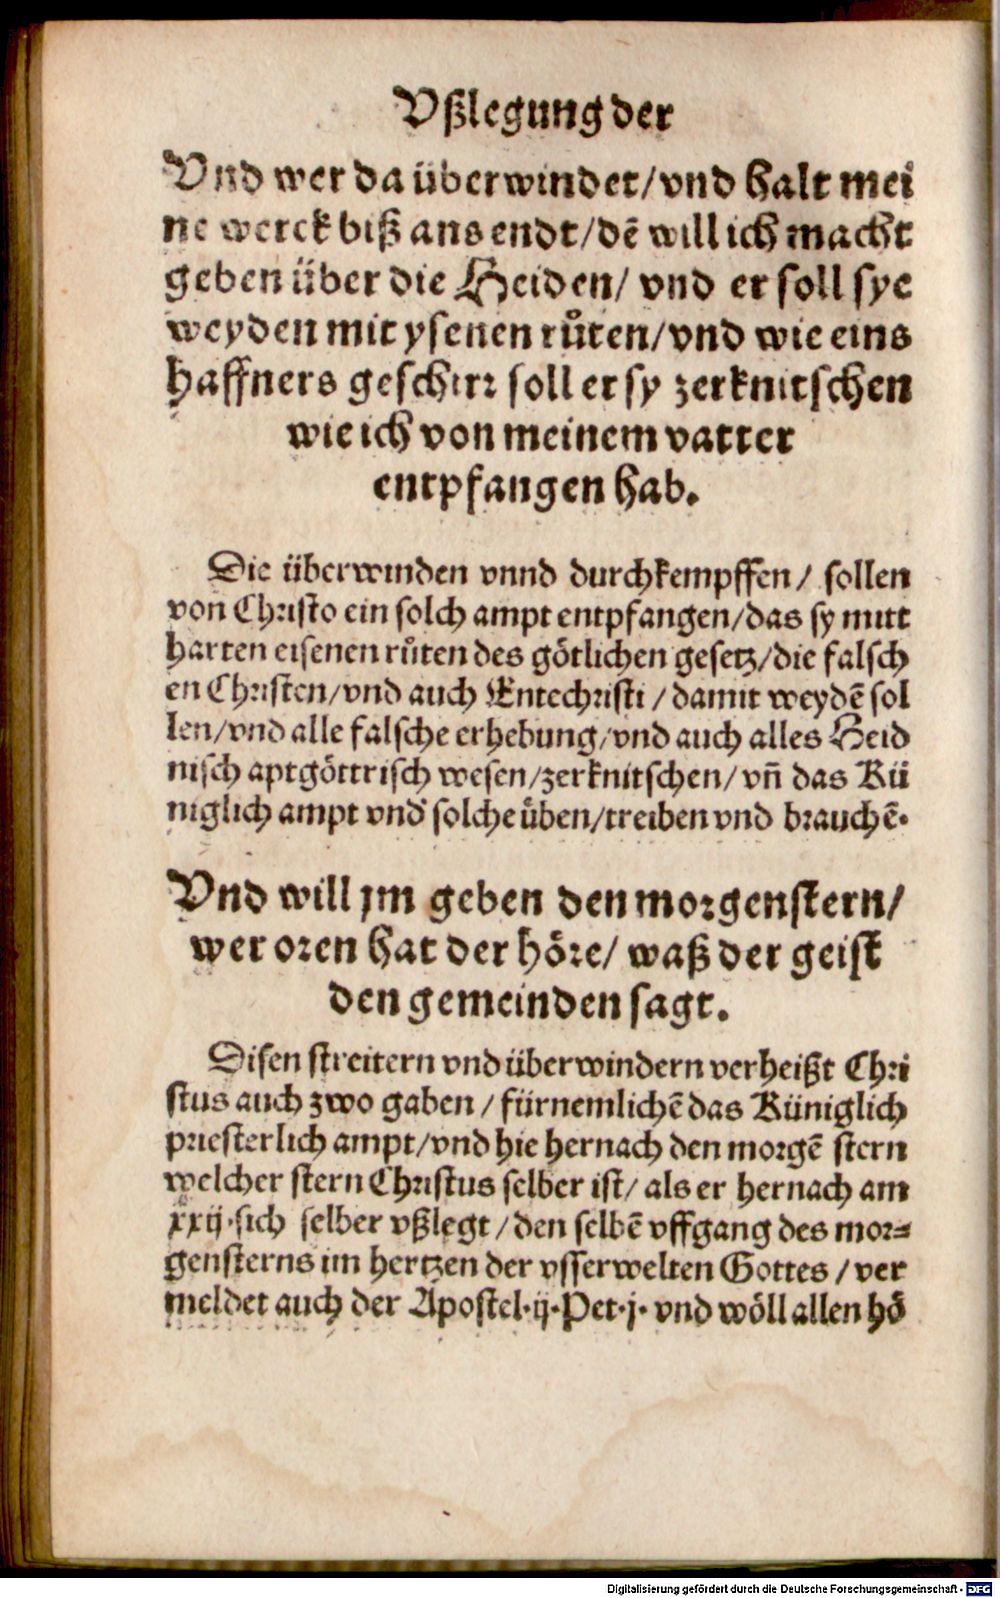 Vßlegung der
Vnd wer da überwindet/vnd halt mei
ne werck biß ans endt/dē will ich macht
geben über die Heiden/ vnd er soll sye
weyden mit ysenen růten/vnd wie eins
haffners geschirr soll er sy zerknitschen
wie ich von meinem vatter
entpfangen hab.
Die überwinden vnnd durchkempffen/ sollen
von Christo ein solch ampt entpfangen/das sy mitt
harten eisenen růten des götlichen gesetz/die falsch
en Christen/vnd auch Entechristi / damit weydē sol
len/vnd alle falsche erhebung/vnd auch alles Heid
nisch aptgöttrisch wesen/zerknitschen/ vñ das Kü
niglich ampt vnd solche üben/treiben vnd brauchē.
Vnd will jm geben den morgenstern/
wer oren hat der höre/ waß der geist
den gemeinden sagt.
Disen streitern vnd überwindern verheißt Chri
stus auch zwo gaben / fürnemlichē das Küniglich
priesterlich ampt/vnd hie hernach den morgē stern
welcher stern Christus selber ist/ als er hernach am
xxij.sich selber vßlegt / den selbē vffgang des mor⸗
gensterns im hertzen der vsserwelten Gottes / ver
meldet auch der Apostel.ij.Pet.j. vnd wöll allen hö
Digitalisierung gefördert durch die Deutsche Forschungsgemeinschaft - DFG